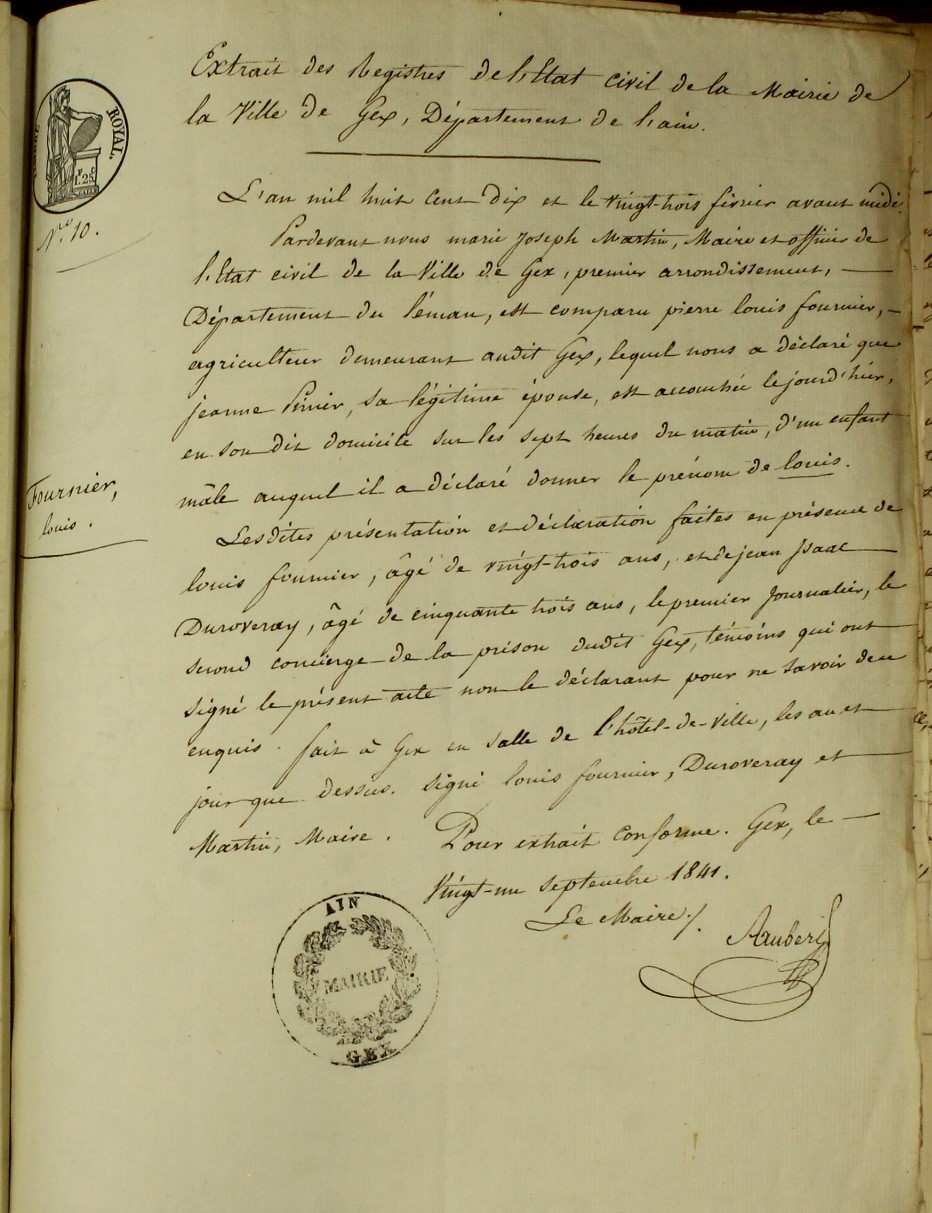 Extrait des Registres de l'Etat civil de la Mairie de
la Ville de Gex, Département de l'ain.
ROYAL.
1.F 25.C
N.ro 10.
L'an mil huit cent dix et le vingt-trois février avant midi.
Pardevant nous marie Joseph Martin, Maire et officier de
l'Etat civil de la Ville de Gex, premier arrondissement, —
Département du Léman, est comparu pierre louis fournier, —
agriculteur demeurant audit Gex, lequel nous a déclaré que
jeanne Perrier, sa légitime épouse, est accouchée le jourd'hier,
en son dit domicile sur les sept heures du matin, d'un enfant
mâle auquel il a déclaré donner le prénom de louis.
Fournier,
louis.
Lesdites présentation et déclaration faites en présence de
louis fournier, âgé de vingt-trois ans, et de jean Isaac —
Duroveray, âgé de cinquante trois ans, le premier Journalier, le
second concierge de la prison dudit Gex, témoins qui ont
signé le présent acte non le déclarant pour ne savoir de ce
enquis. fait à Gex en salle de l'hôtel-de-ville, les an et —
jour que dessus. signé louis fournier, Duroveray et —
Martin, Maire. Pour extrait conforme. Gex, le —
Vingt-un septembre 1841.
Le Maire,
AIN
MAIRIE
GEX